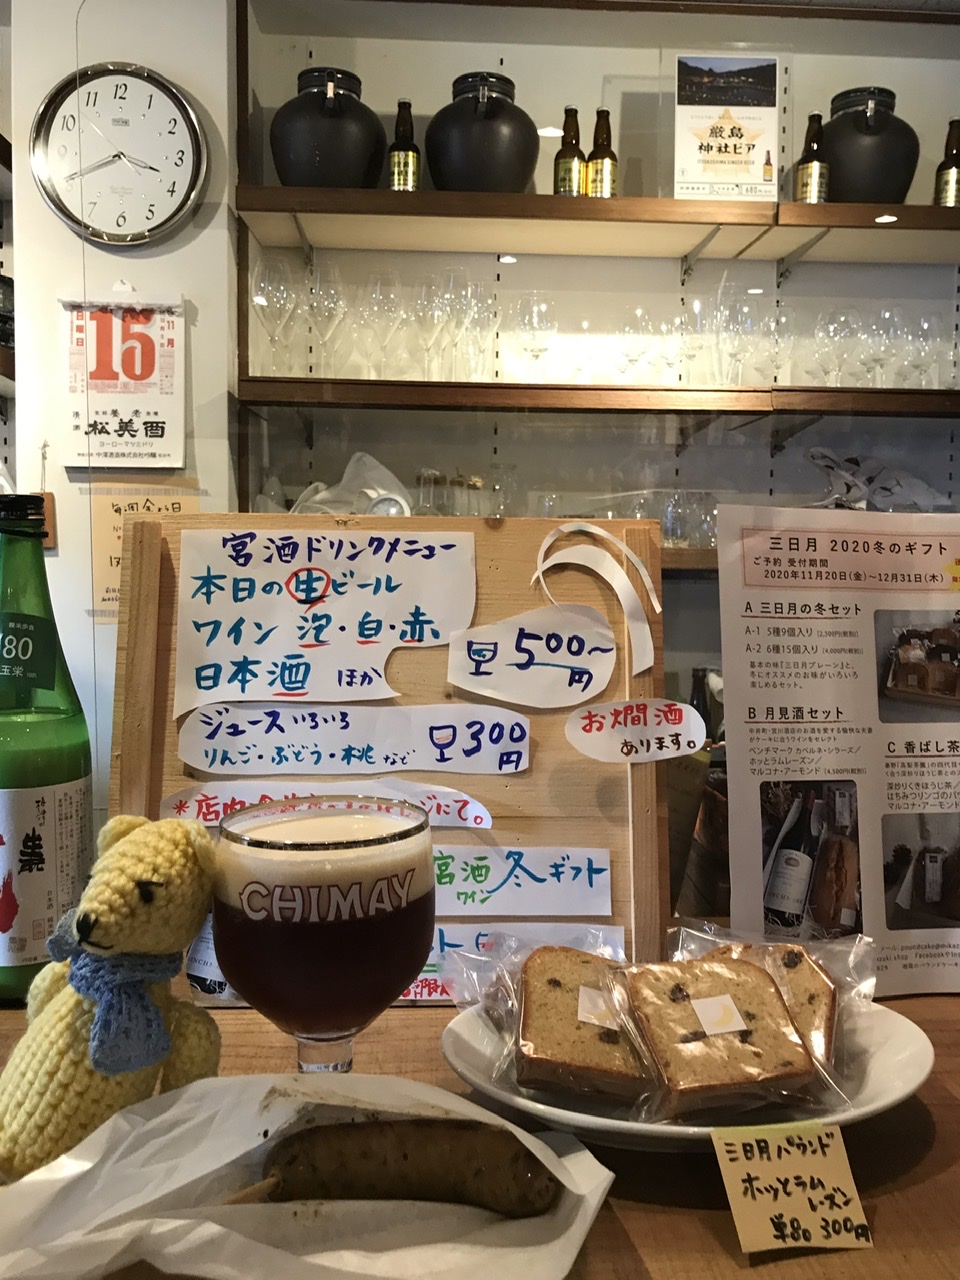 12
1
2
3
4
5
6
7
8
10
11
厳島
神社ビア
ITSUKUSHIMA GINGER BEER
680円
日曜日
15
11月
清酒
養老
松美酉
ヨーローマツミドリ
中澤酒造株式会社
毎週金
80
玉栄
宮酒ドリンクメニュー
本日の生ビール
ワイン 泡・白・赤
日本酒 ほか
500〜
円
ジュースいろいろ
りんご・ぶどう・桃など
300
円
お燗酒
あります。
*店内
にて。
宮酒 冬ギフト
ワイン
CHIMAY
三日月 2020冬のギフト
ご予約 受付期間
2020年11月20日(金)〜12月31日(木)
A 三日月の冬セット
A-1 5種9個入り [2,500円(税別)]
A-2 6種15個入り [4,000円(税別)]
基本の味『三日月プレーン』と、
冬にオススメのお味がいろいろ
楽しめるセット。
B 月見酒セット
中井町・宮川酒店のお酒を愛する愉快な夫妻
がケーキに合うワインをセレクト
ベンチマーク カベルネ・シラーズ／
ホッとラムレーズン／
マルコナ・アーモンド [4,500円(税別)]
C 香ばし茶
深炒りくきほうじ茶／
はちみつリンゴのパ
マルコナ・アーモンド
三日月パウンド
ホッとラム
レーズン
単80 300円